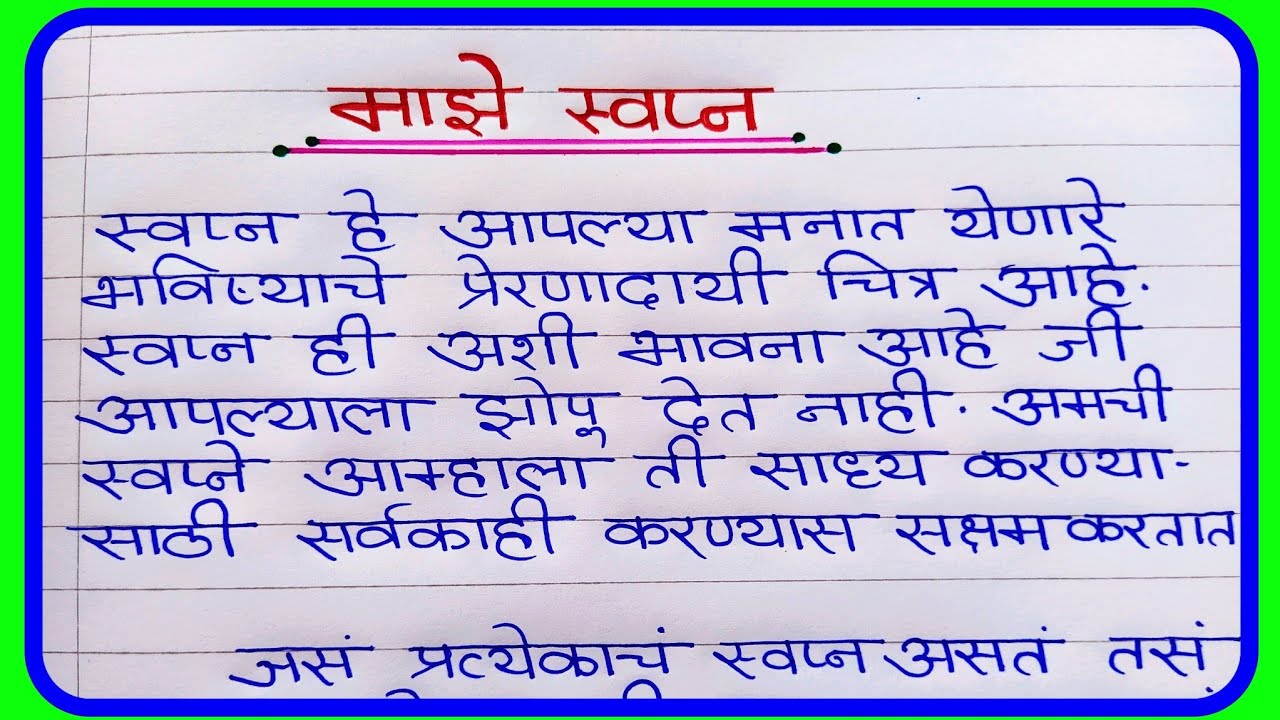 माझे स्वप्न
स्वप्न हे आपल्या मनात येणारे
भविष्याचे प्रेरणादायी चित्र आहे.
स्वप्न ही अशी भावना आहे जी
आपल्याला झोपू देत नाही. अमची
स्वप्ने आम्हाला ती साध्य करण्या-
साठी सर्वकाही करण्यास सक्षम करतात
जसं प्रत्येकाचं स्वप्न असतं तसं